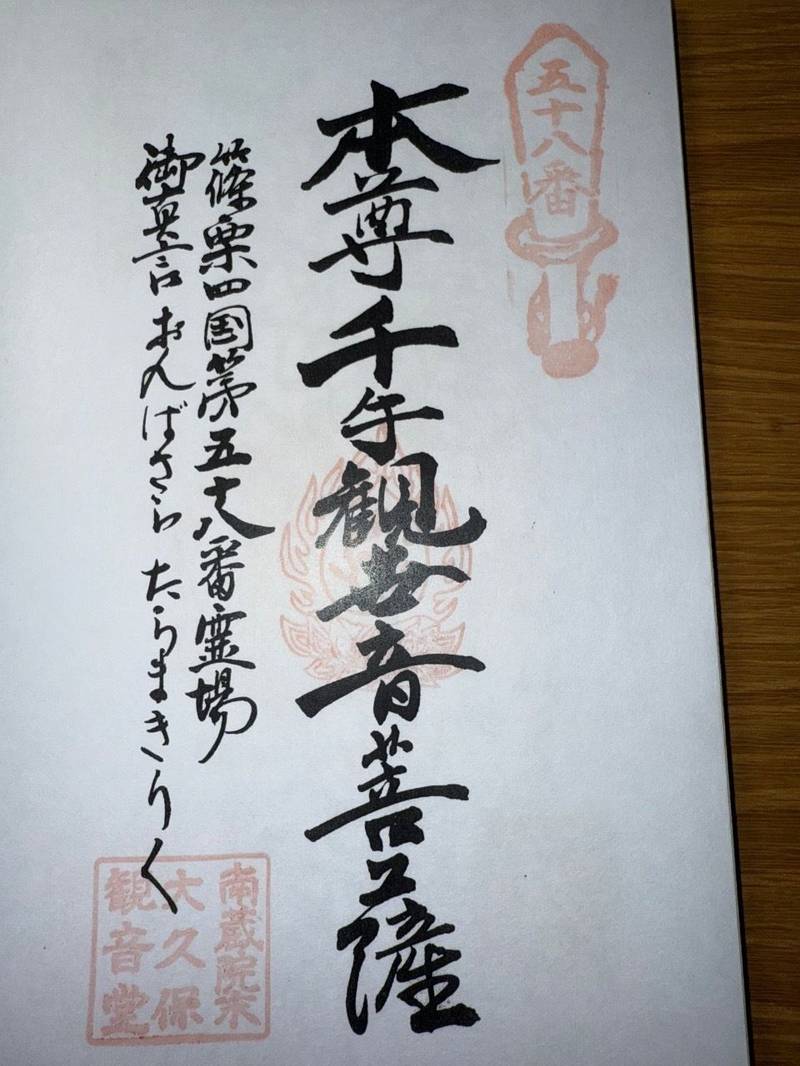 五十八番
本尊千手観世音菩薩
篠栗四国第五十八番霊場
御真言 おんばさら たらまきりく
南蔵院末
大久保
観音堂